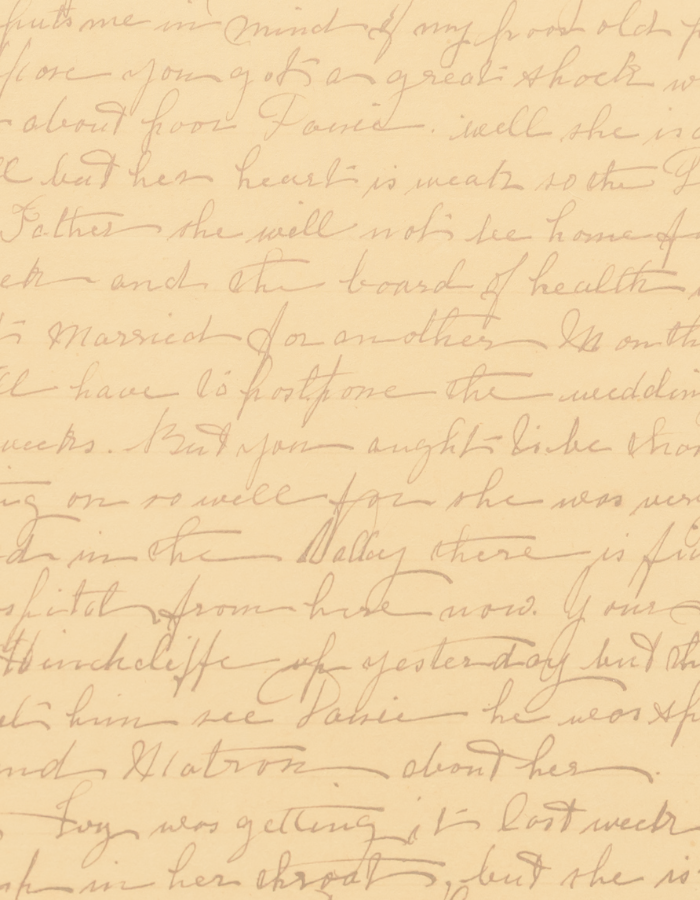 puts me in mind of my poor old
fore you got a great shock w
about poor Pansie. well she is
ll but her heart is weak so the
Father she will not be home f
ek and the board of health
t married for another Month
ll have to postpone the weddin
weeks. But you aught to be than
ng on so well for she was very
d in the Valley there is fi
spital from here now. Your
Hinchcliffe up yesterday but th
et him see Pansie he was sp
nd Matron about her.
Ivy was getting it last week
in her throat, but she is